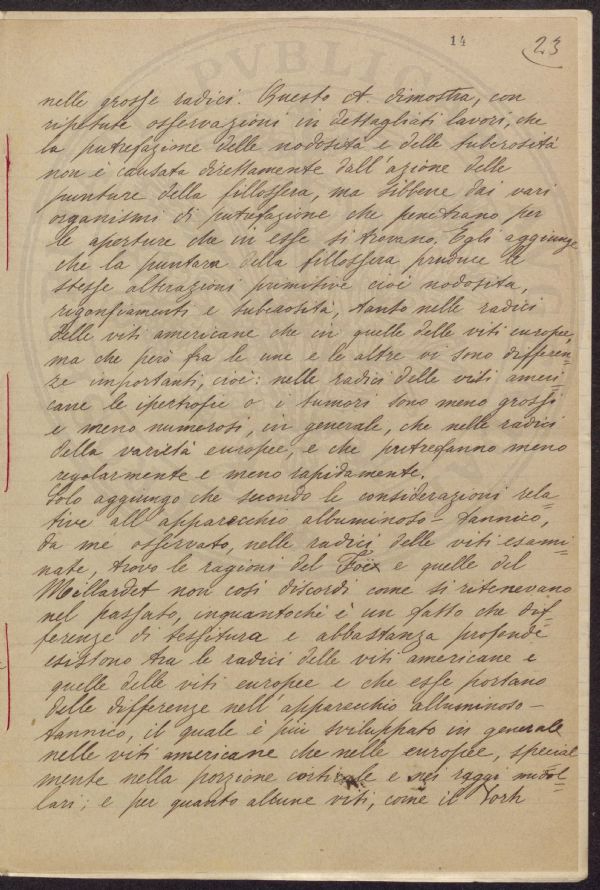 14
23
nelle grosse radici. Questo A. dimostra, con
ripetute osservazioni in dettagliati lavori, che
la putrefazione delle nodosità e delle tuberosità
non è causata direttamente dall'azione delle
punture della fillossera, ma sibbene dai vari
organismi di putrefazione che penetrano per
le aperture che in esse si trovano. Egli aggiunge
che la puntura della fillossera produce le
stesse alterazioni primitive cioè nodosità,
rigonfiamenti e tuberosità, tanto nelle radici
delle viti americane che in quelle delle viti europee,
ma che però fra le une e le altre vi sono differen=
ze importanti, cioè: nelle radici delle viti ameri=
cane le ipertrofie o i tumori sono meno grossi
e meno numerosi, in generale, che nelle radici
della varietà europee, e che putrefanno meno
regolarmente e meno rapidamente.
Solo aggiungo che secondo le considerazioni rela=
tive all'apparecchio albuminoso-tannico,
da me osservato, nelle radici delle viti esami=
nate, trovo le ragioni del Foëx e quelle del
Millardet non così discordi come si ritenevano
nel passato, inquantochè è un fatto che dif=
ferenze di tessitura e abbastanza profonde
esistono tra le radici delle viti americane e
quelle delle viti europee e che esse portano
delle differenze nell'apparecchio albuminoso-
tannico, il quale è più sviluppato in generale
nelle viti americane che nelle europee, special
mente nella porzione corticale e nei raggi midol=
lari; e per quanto alcune viti, come il York
PVBLIC